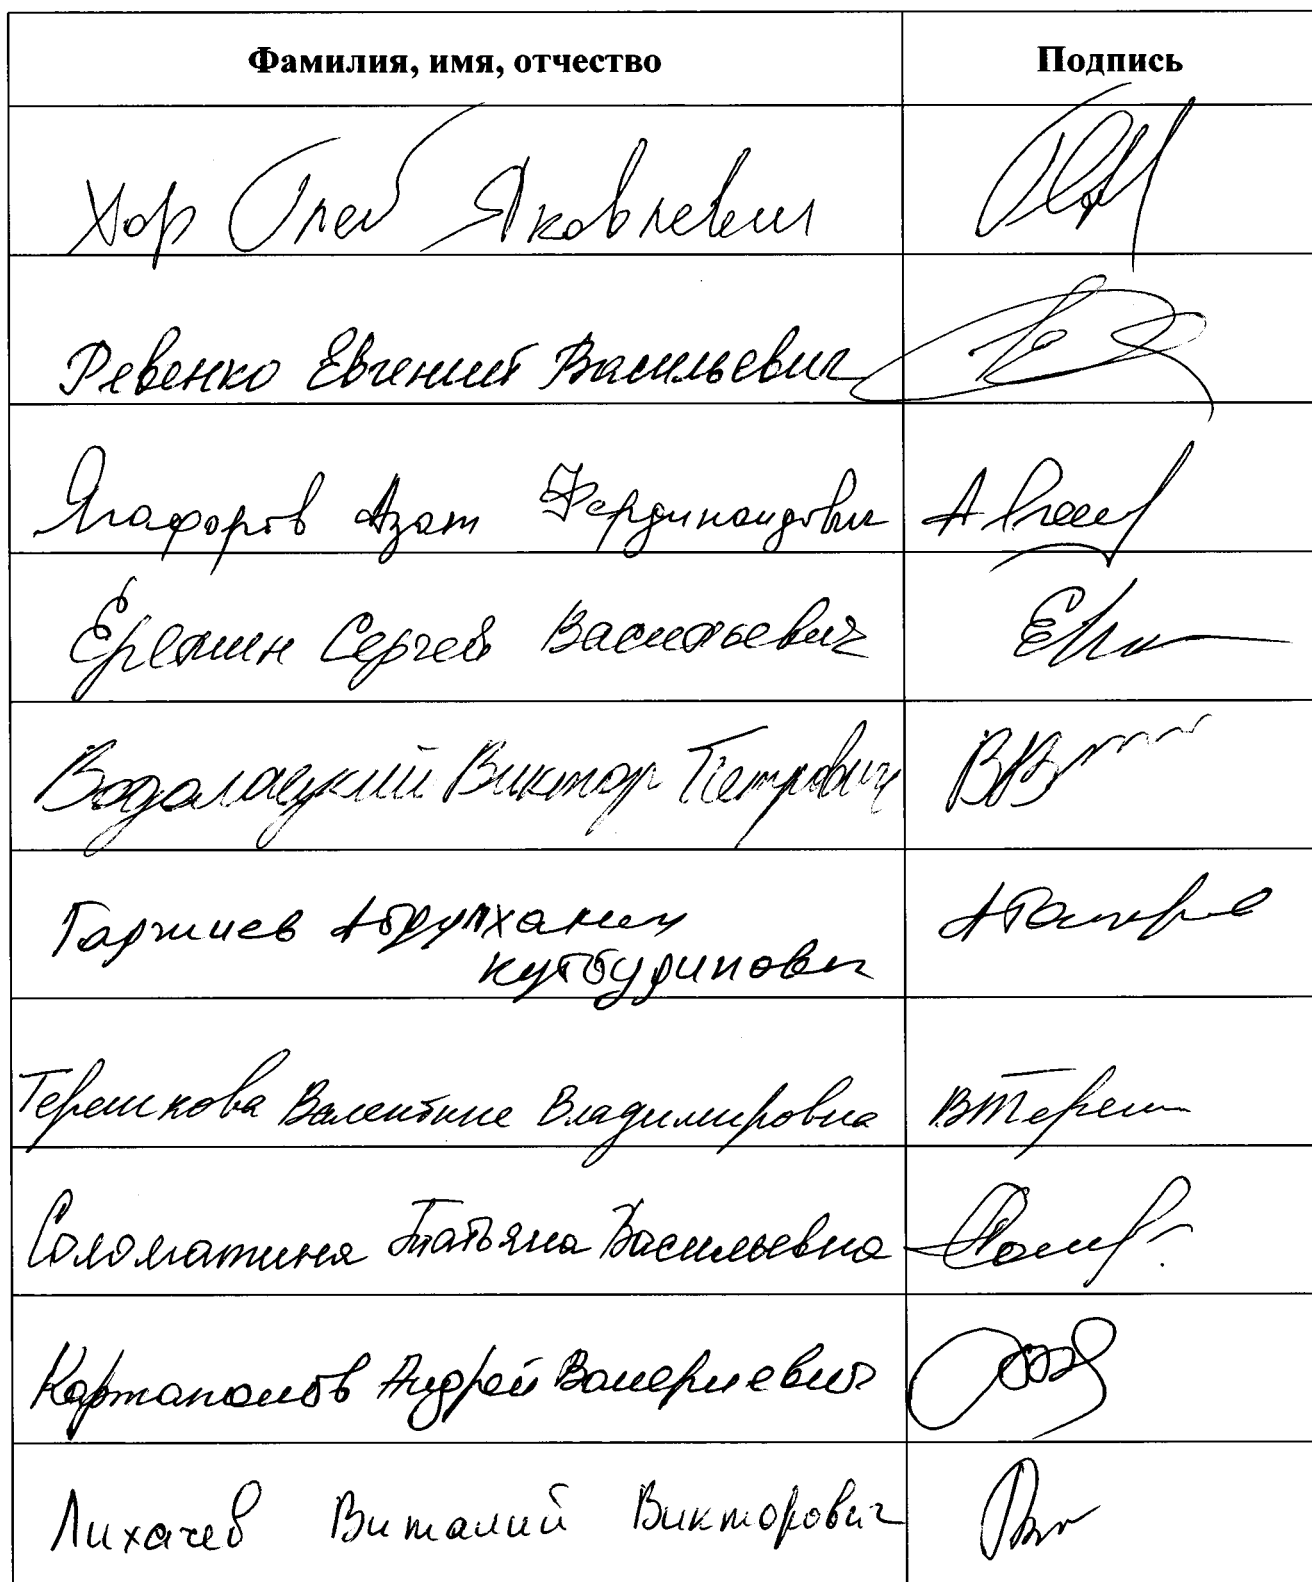 Фамилия, имя, отчество Подпись
Хор Глеб Яковлевич
Ревенко Евгений Васильевич
Ягафаров Азат Фердинандович
Ерёмин Сергей Васильевич
Водолацкий Виктор Петрович
Гаджиев Абдулхаким
Кутбудинович
Терешкова Валентина Владимировна ВТереш
Соломатина Татьяна Васильевна
Картаполов Андрей Валериевич
Лихачев Виталий Викторович